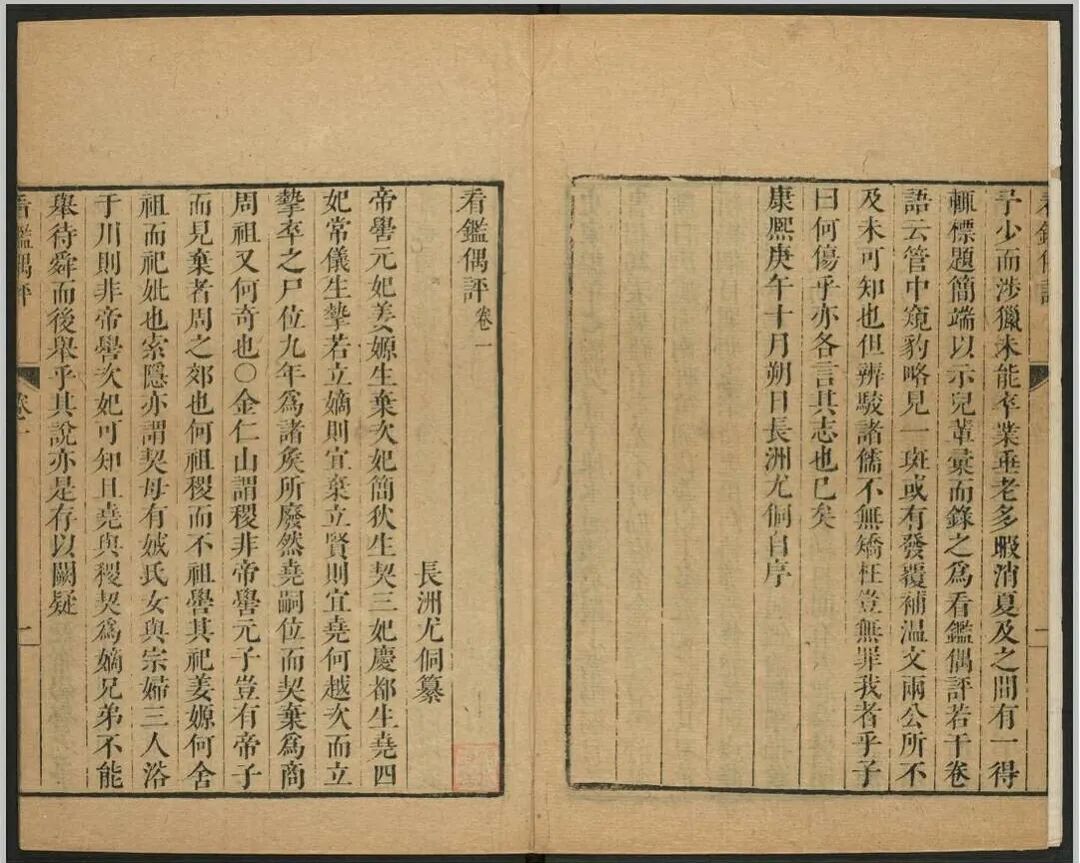 看鑑偶評
一
予少而涉獵未能卒業垂老多暇消夏及之間有一得
輒標題簡端以示兒輩彙而錄之爲看鑑偶評若干卷
語云管中窺豹略見一斑或有發覆補温文兩公所不
及未可知也但辨駮諸儒不無矯枉豈無罪我者乎子
曰何傷乎亦各言其志也已矣
康熈庚午十月朔日長洲尤侗自序
看鑑偶評卷一
長洲尤侗纂
帝嚳元妃姜嫄生棄次妃簡狄生契三妃慶都生堯四
妃常儀生摯若立嫡則宜棄立賢則宜堯何越次而立
摯卒之尸位九年爲諸矦所廢然堯嗣位而契棄爲商
周祖又何奇也〇金仁山謂稷非帝嚳元子豈有帝子
而見棄者周之郊也何祖稷而不祖嚳其祀姜嫄何舍
祖而祀妣也索隱亦謂契母有娀氏女與宗婦三人浴
于川則非帝嚳次妃可知且堯與稷契爲嫡兄弟不能
舉待舜而後舉乎其說亦是存以闕疑
看鑑偶評
卷一
一